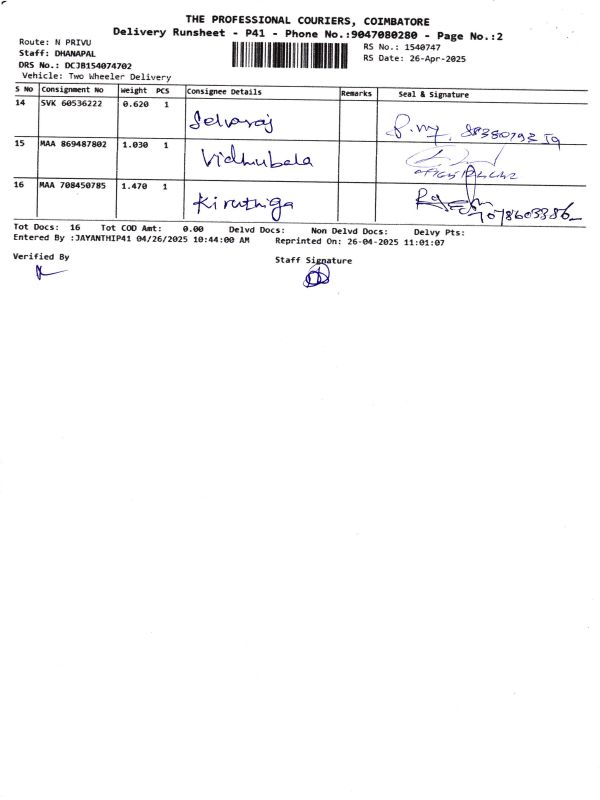 THE PROFESSIONAL COURIERS, COIMBATORE
Delivery Runsheet - P41 - Phone No.:9047080280 - Page No.:2
Route: N PRIVU
RS No.: 1540747
Staff: DHANAPAL
RS Date: 26-Apr-2025
DRS No.: DCJB154074702
Vehicle: Two Wheeler Delivery
S No Consignment No Weight PCS Consignee Details Remarks Seal & Signature
14 SVK 60536222 0.620 1 Selvaraj
15 MAA 869487802 1.030 1 Vidhubala
16 MAA 708450785 1.470 1 Kiruthiga
Tot Docs: 16 Tot COD Amt: 0.00 Delvd Docs: Non Delvd Docs: Delvy Pts:
Entered By :JAYANTHIP41 04/26/2025 10:44:00 AM Reprinted On: 26-04-2025 11:01:07
Verified By
Staff Signature